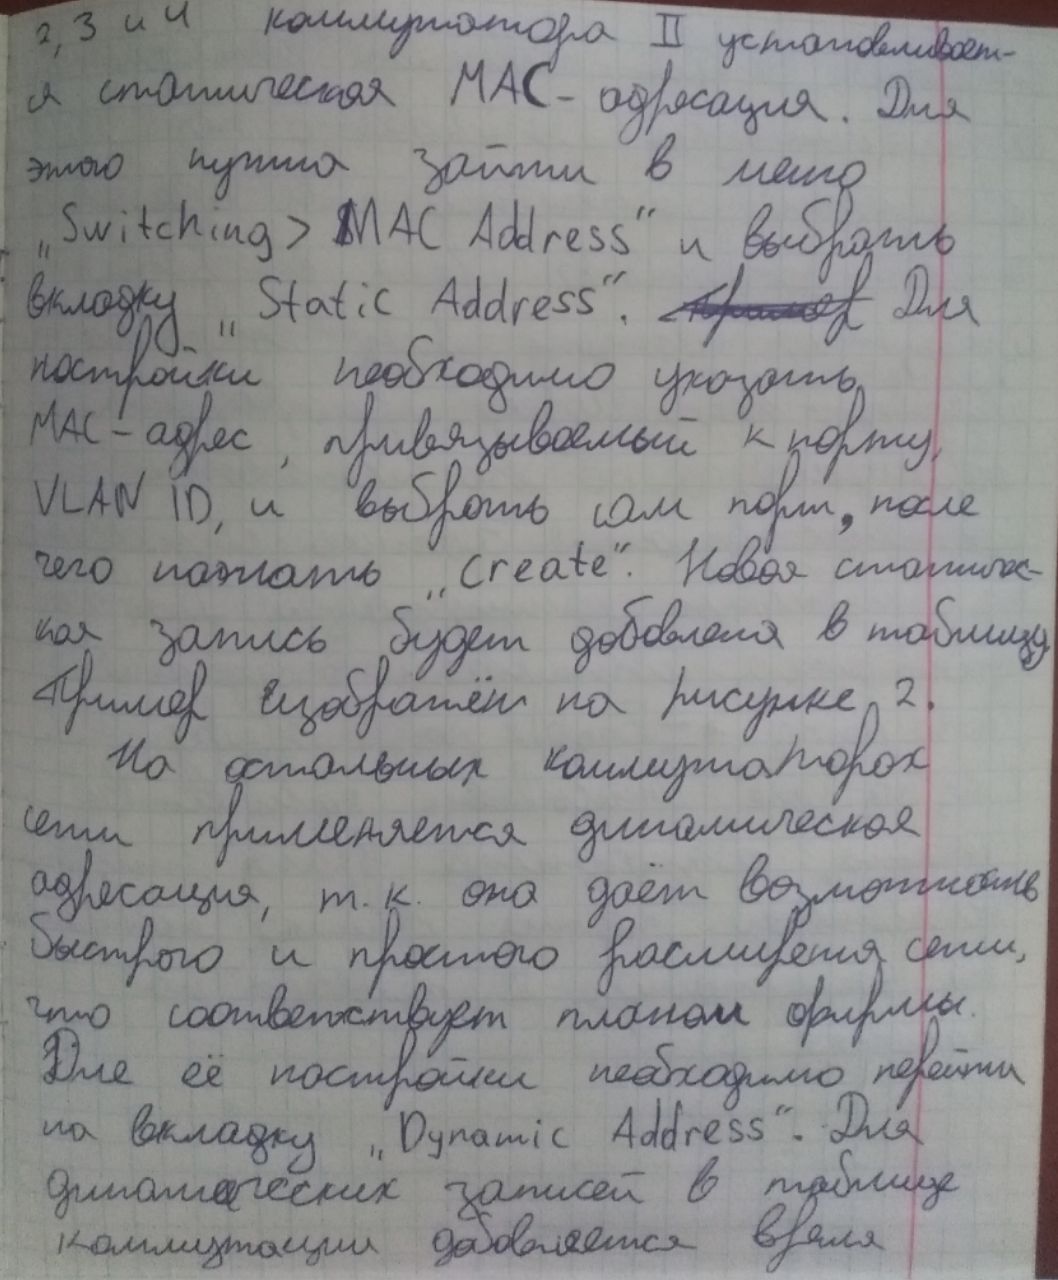 2, 3 и 4 коммутатора II устанавливает-
ся статическая MAC-адресация. Для
этого нужно зайти в меню
„Switching > MAC Address" и выбрать
вкладку „Static Address". Для
настройки необходимо указать
MAC-адрес, привязываемый к порту,
VLAN ID, и выбрать сам порт, после
чего нажать „Create". Новая статичес-
кая запись будет добавлена в таблицу
Пример изображён на рисунке 2.
На остальных коммутаторах
сети применяется динамическая
адресация, т.к. она даёт возможность
быстрого и простого расширения сети,
что соответствует планам фирмы.
Для её настройки необходимо перейти
на вкладку „Dynamic Address". Для
динамических записей в таблице
коммутации добавляется время